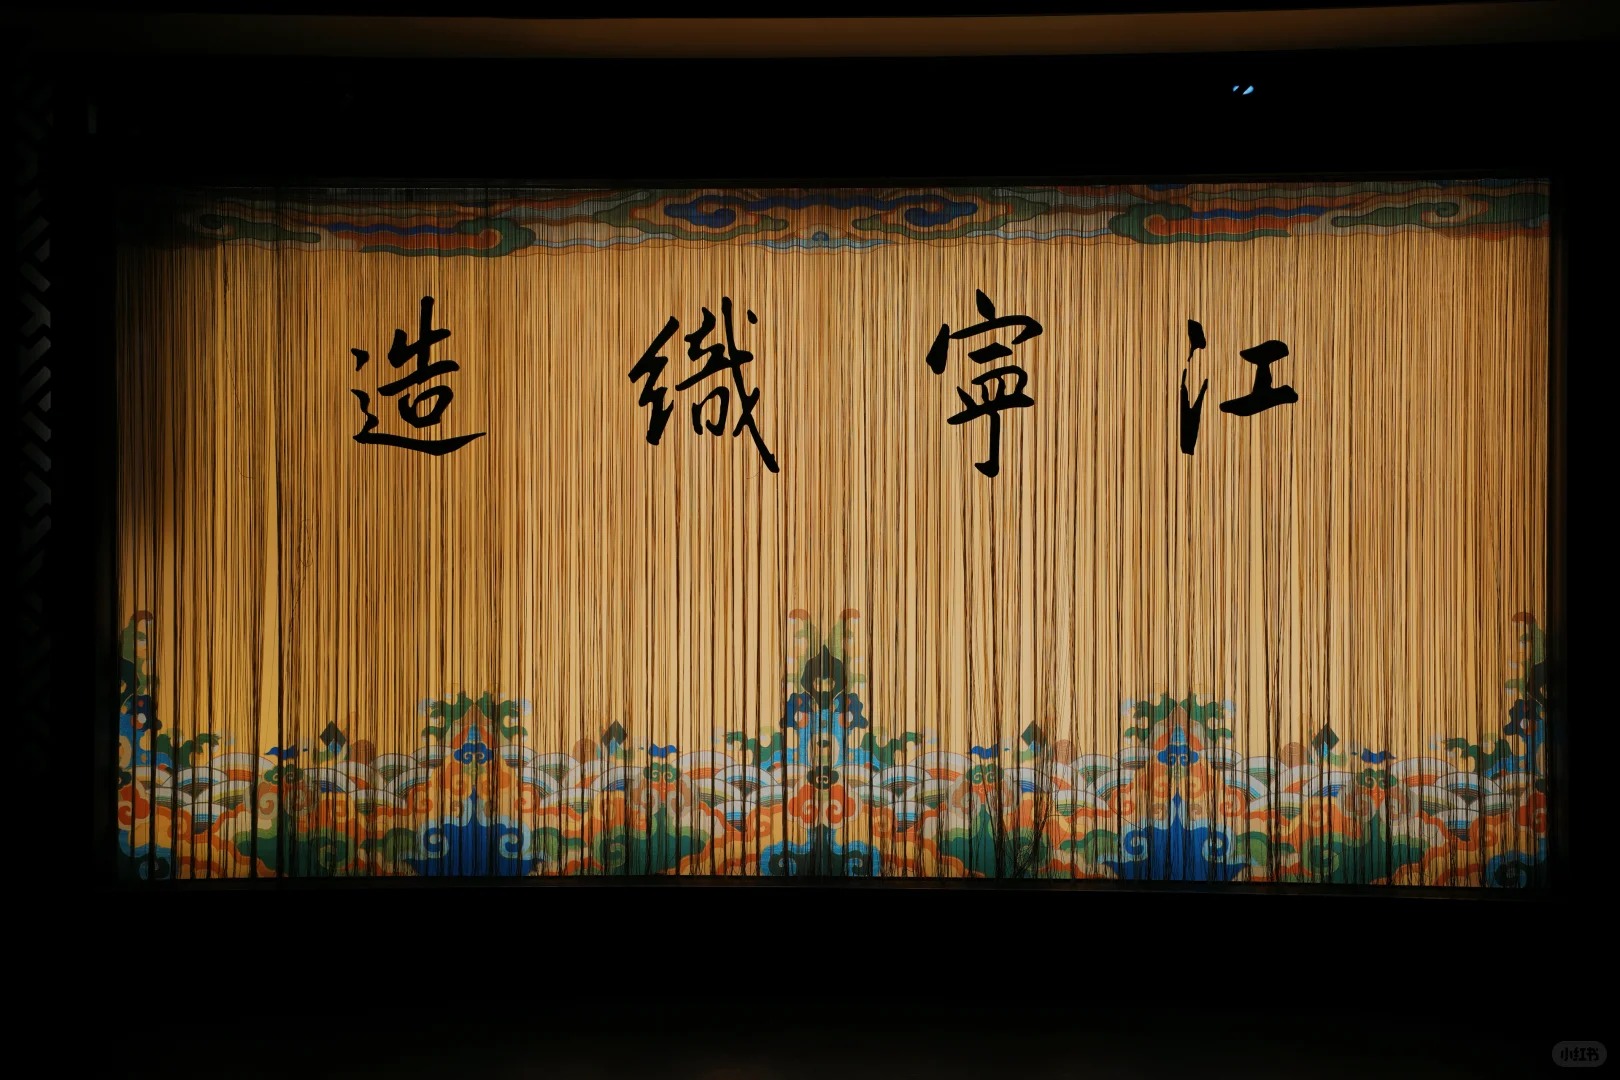 江寧織造
小红书